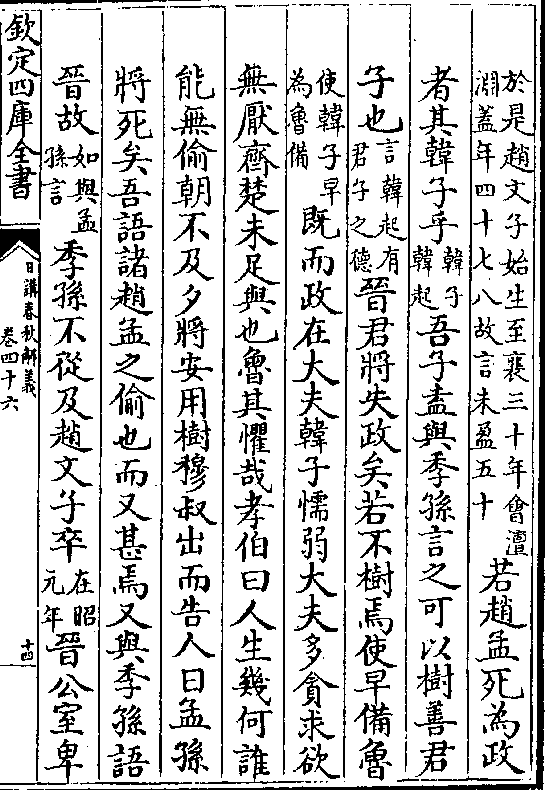 於是趙文子始生至襄三十年會澶
淵蓋年四十七八故言未盈五十
若趙孟死為政
者其韓子乎
韓子
韓起
吾子盍與季孫言之可以樹善君
子也
言韓起有
君子之德
晉君將失政矣若不樹焉使早備魯
使韓子早
為魯備
既而政在大夫韓子懦弱大夫多貪求欲
無厭齊楚未足與也魯其懼哉孝伯曰人生幾何誰
能無偷朝不及夕將安用樹穆叔出而告人曰孟孫
將死矣吾語諸趙孟之偷也而又甚焉又與季孫語
晉故
如與孟
孫言
季孫不從及趙文子卒
在昭
元年
晉公室卑
欽定四庫全書
日講春秋解義
卷四十六
十四